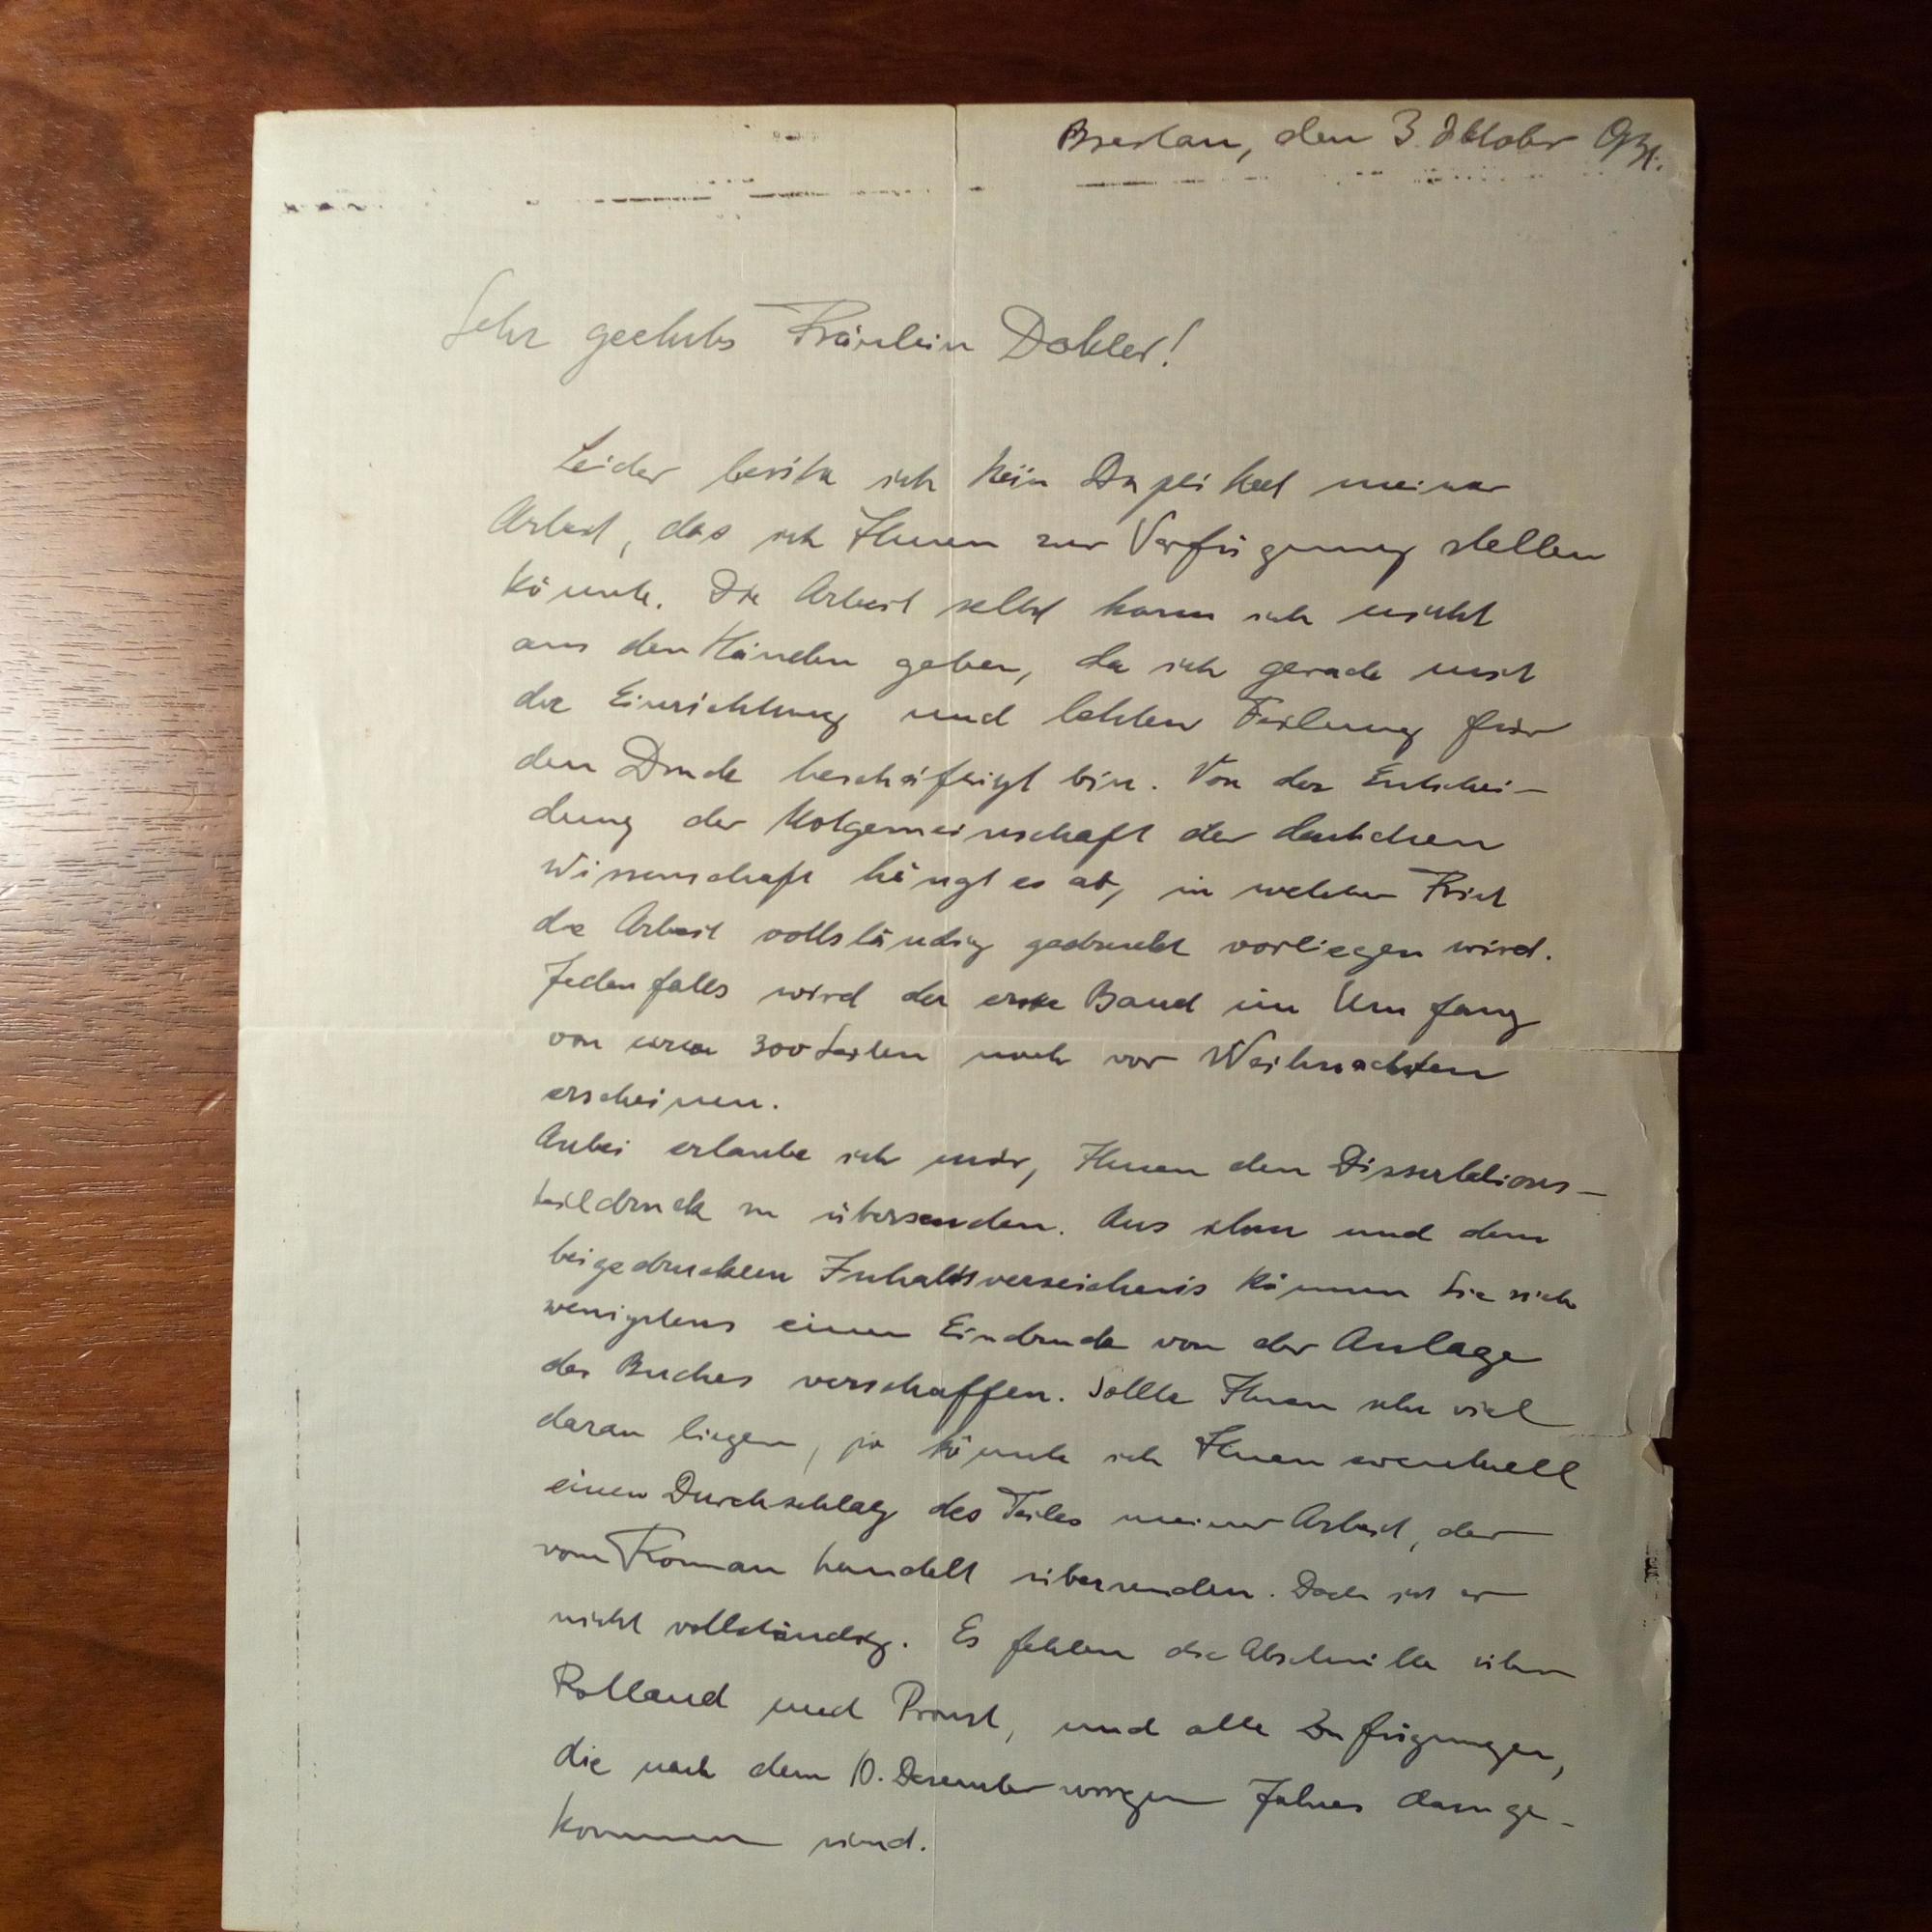 Breslau, den 3. Oktober
Sehr geehrtes Fräulein Dobler!
Leider besitze ich kein Duplikat meiner
Arbeit, das ich Ihnen zur Verfügung stellen
könnte. Die Arbeit selbst kann ich nicht
aus den Händen geben, da ich gerade mit
der Einrichtung und letzten Feilung für
den Druck beschäftigt bin. Von der Entschei-
dung der Notgemeinschaft der deutschen
Wissenschaft hängt es ab, in welcher Frist
die Arbeit vollständig gedruckt vorliegen wird.
Jedenfalls wird der erste Band im Umfang
von circa 300 Seiten noch vor Weihnachten
erscheinen.
Anbei erlaube ich mir, Ihnen den Dissertations-
teildruck zu übersenden. Aus ihm und dem
beigedruckten Inhaltsverzeichnis können Sie sich
wenigstens einen Eindruck von der Anlage
des Buches verschaffen. Sollte Ihnen sehr viel
daran liegen, so könnte ich Ihnen eventuell
einen Durchschlag des Teiles meiner Arbeit, der
vom Roman handelt übersenden. Doch ist er
nicht vollständig. Es fehlen die Abschnitte über
Rolland und Proust, und alle Zufügungen,
die nach dem 10. Dezember vorigen Jahres dazuge-
kommen sind.